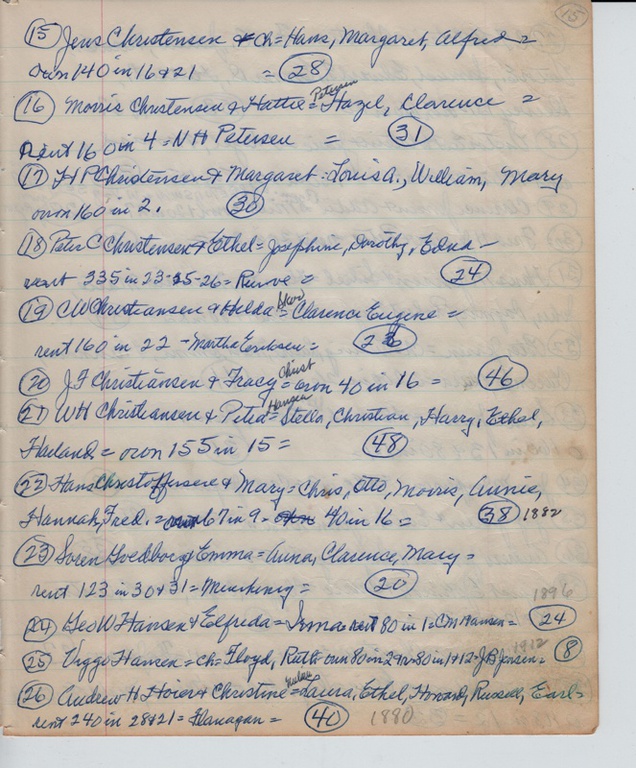 15
(15) Jens Christensen & ch = Hans, Margaret, Alfred =
own 140 in 16 & 21 = (28)
Petersen
(16) Morris Christensen & Hattie = Hazel, Clarence =
Rent 160 in 4 = N H Petersen = (31)
(17) H P Christensen & Margaret = Louis A., William, Mary
own 160 in 2. (30)
(18) Peter C Christensen & Ethel = Josephine, Dorothy, Edna =
rent 335 in 23-25-26 = = (24)
(19) C W Christiansen & Hilda = Clarence Eugene =
rent 160 in 22 - Martha Ericksen = (26)
Christ
(20) J F Christiansen & Tracy = own 40 in 16 = (46)
Hansen
(21) W H Christiansen & Petra = Stella, Christian, Harry, Ethel,
Harland = own 155 in 15 = (48)
(22) Hans Christoffersen & Mary = Chris, Otto, Morris, Annie,
Hannah, Fred. = 67 in 9 = 40 in 16 = (38) 1882
(23) Soren & Emma = Anna, Clarence, Mary =
rent 123 in 30 & 31 = = (20)
1896
(24) Geo W Hansen & Elfreda = Irma = rent 80 in 1 = C M Hansen = (24)
1912
(25) Viggo Hansen = ch = Floyd, Ruth = own 80 in 2 & r 80 in 1 & 12 = J B Jensen = (8)
(26) Andrew H Hoier & Christine = Laura, Ethel, Howard, Russell, Earl =
rent 240 in 28 & 21 = Flanagan = (40) 1880